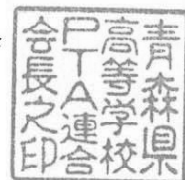 青森県
高等学校
PTA連合
会長之印